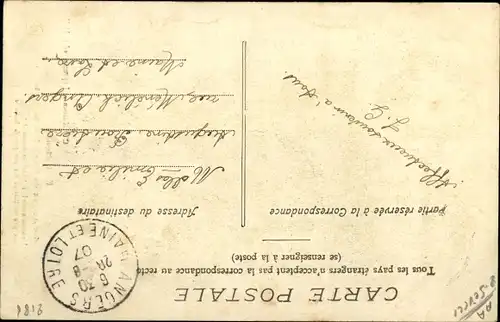 CARTE POSTALE
Tous les pays étrangers n'acceptent pas la correspondance au recto
(se renseigner à la poste)
Partie réservée à la Correspondance
Adresse du destinataire
Affectueux souvenir à tous.
J. G.
Melles Emilia et
Augustine Baudière
rue Menelick, Angers
Maine et Loire
ANGERS
MAINE ET LOIRE
6 30
28 - 8
07
2181